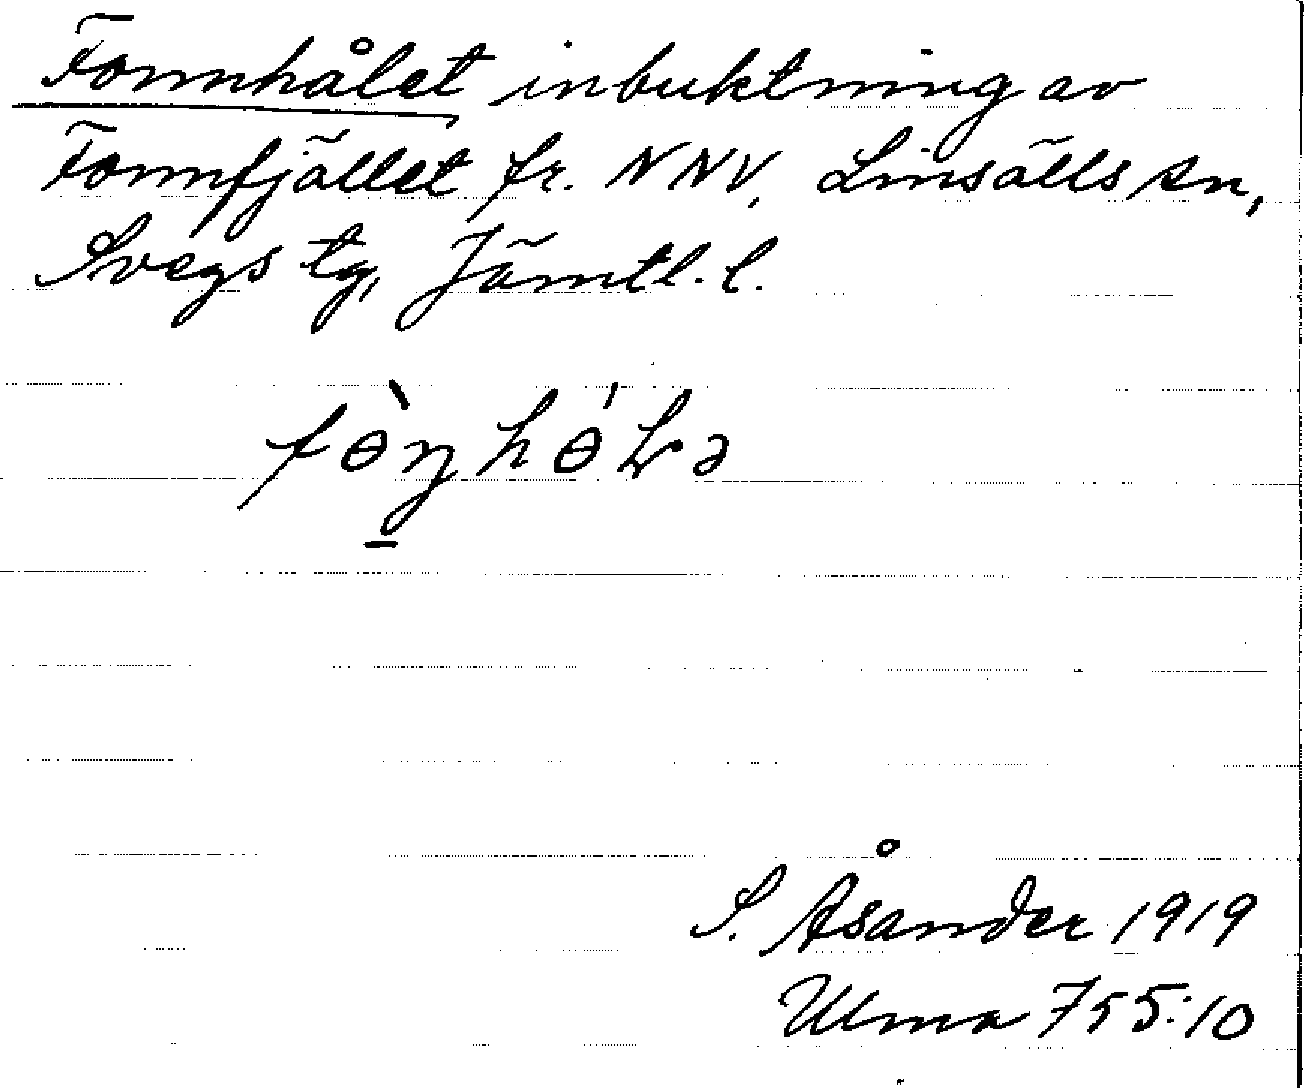 Fonnhålet inbuktning av
Fonnfjället fr. NNV, Linsälls sn,
Svegs tg, Jämtl. l.
S. Åsander 1919
Ulma 755:10